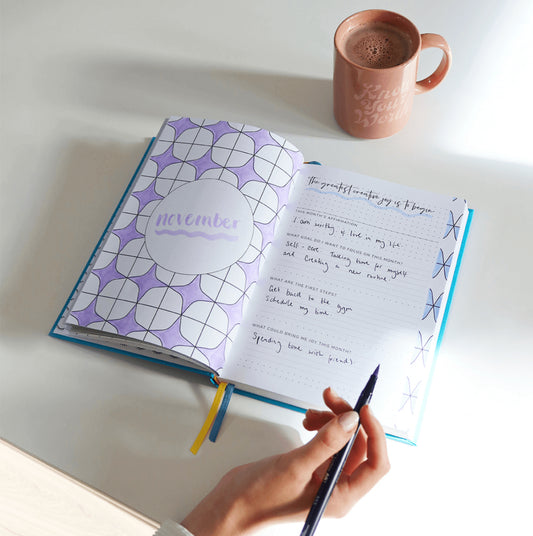 Know
Your
Worth
november
The greatest creative joy is to begin.
THIS MONTH'S AFFIRMATION
I am worthy of love in my life.
WHAT GOAL DO I WANT TO FOCUS ON THIS MONTH?
Self-care. Taking time for myself
and creating a new routine.
WHAT ARE THE FIRST STEPS?
Get back to the gym
Schedule my time.
WHAT COULD BRING ME JOY THIS MONTH?
Spending time with friends